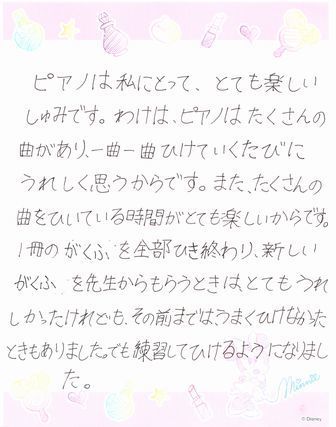 ピアノは、私にとって、とても楽しい
しゅみです。わけは、ピアノはたくさんの
曲があり、一曲一曲ひけていくたびに
うれしく思うからです。また、たくさんの
曲をひいている時間がとても楽しいからです。
1冊のがくふを全部ひき終わり、新しい
がくふを先生からもらうときは、とてもうれ
しかったけれども、その前までは、うまくひけなかった
ときもありました。でも練習してひけるようになりまし
た。
Minnie
© Disney